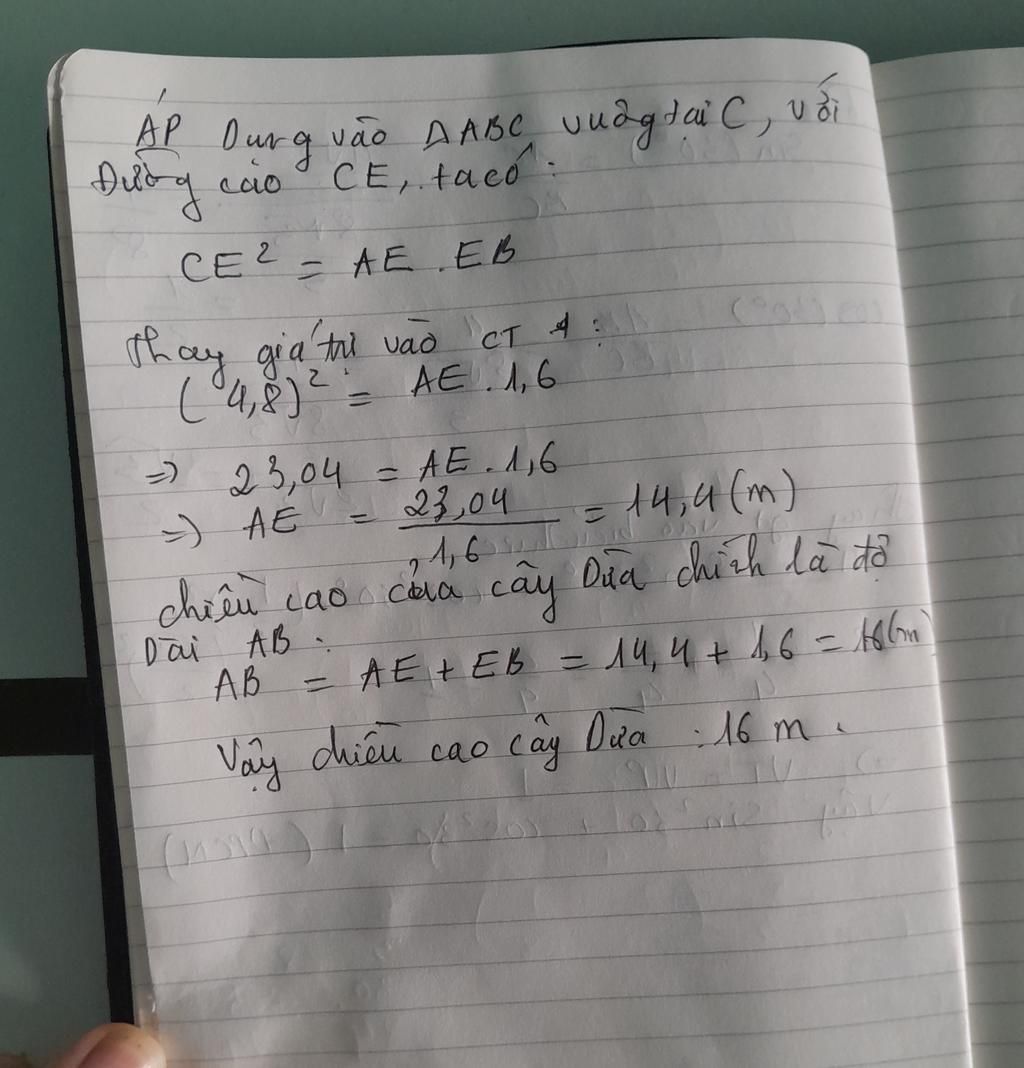 ÁP Dụng vào ΔABC vuông tại C, với
Đường cao CE, ta có :
CE² = AE . EB
Thay giá trị vào CT :
(4,8)² = AE . 1,6
=> 23,04 = AE . 1,6
=> AE = 23,04 / 1,6 = 14,4 (m)
chiều cao của cây Dừa chính là độ
Dài AB :
AB = AE + EB = 14,4 + 1,6 = 16(m)
Vậy chiều cao cây Dừa : 16 m .